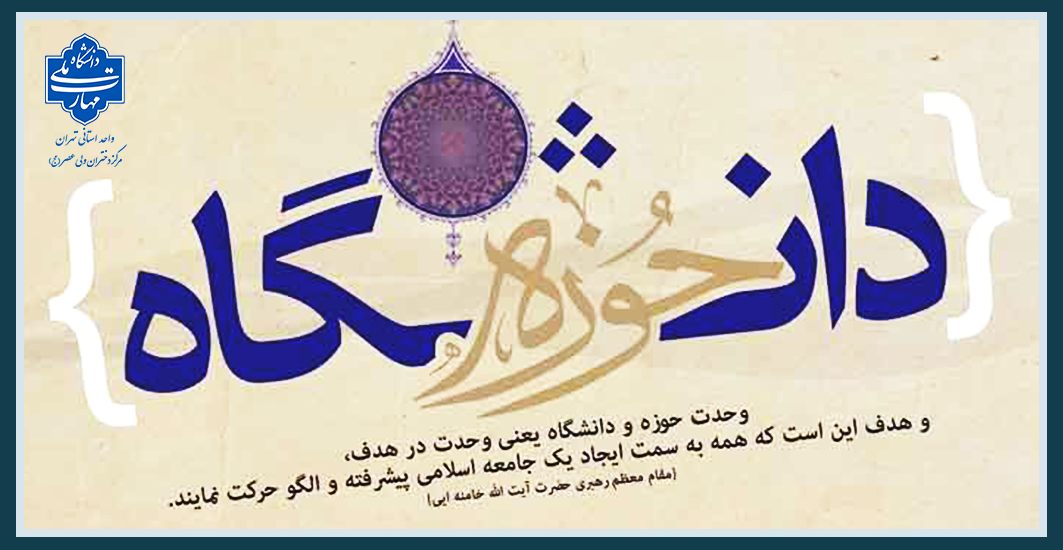 دانشگاه ملی مهارت
واحد استانی تهران
مرکز دختران ولی عصر (عج)
دانشگاه
حُوزه
وحدت حوزه و دانشگاه یعنی وحدت در هدف،
و هدف این است که همه به سمت ایجاد یک جامعه اسلامی پیشرفته و الگو حرکت نمایند.
(مقام معظم رهبری حضرت آیت الله خامنه ایی)